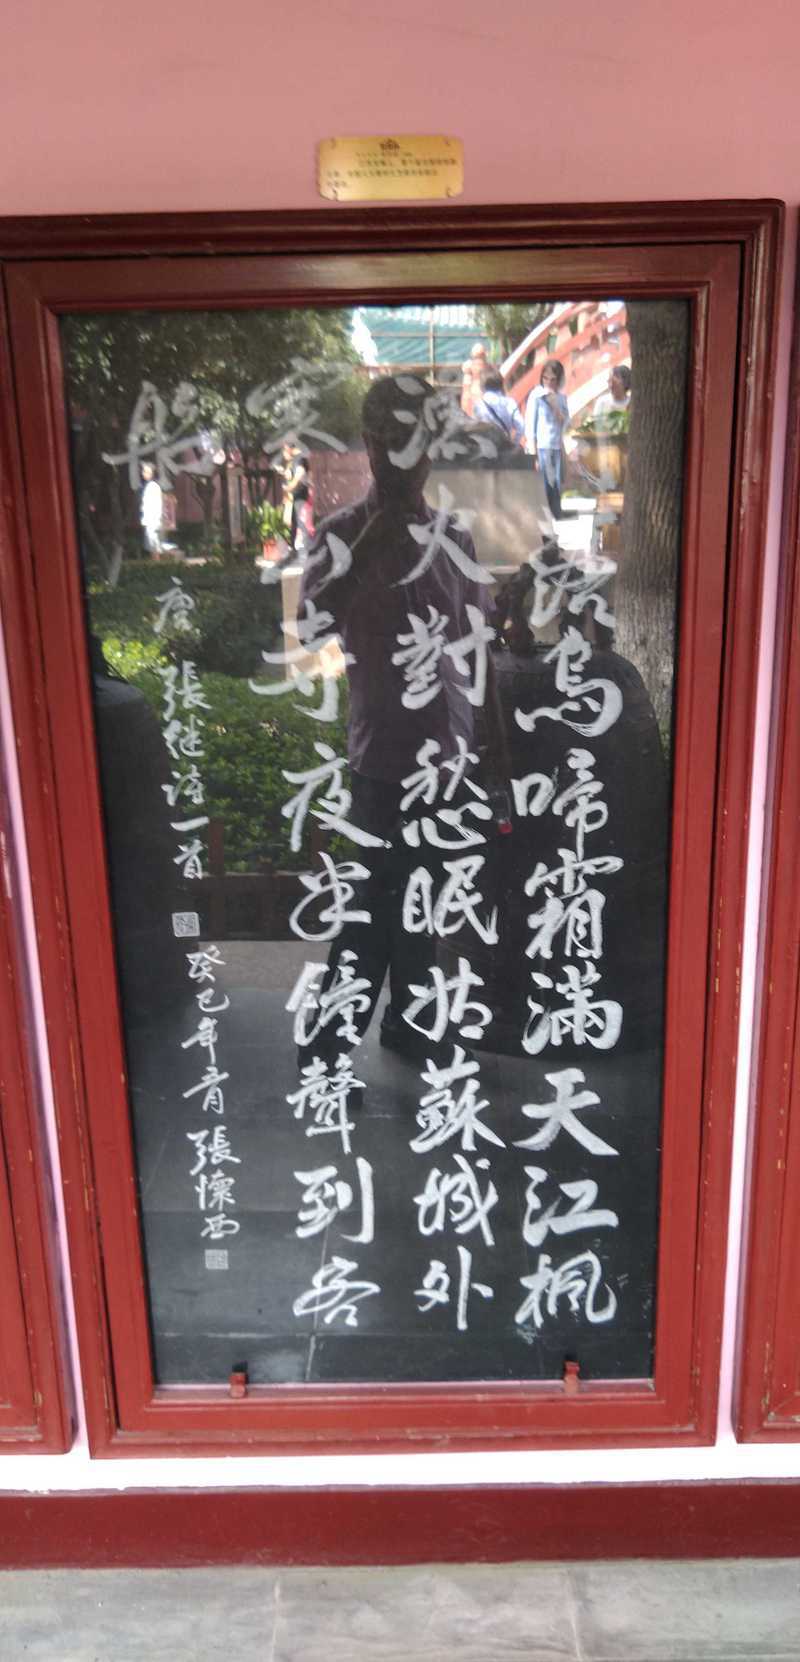 落烏啼霜滿天江楓
漁火對愁眠姑蘇城外
寒山寺夜半鐘聲到客
船
唐 張继诗一首
癸巳年 張懷西